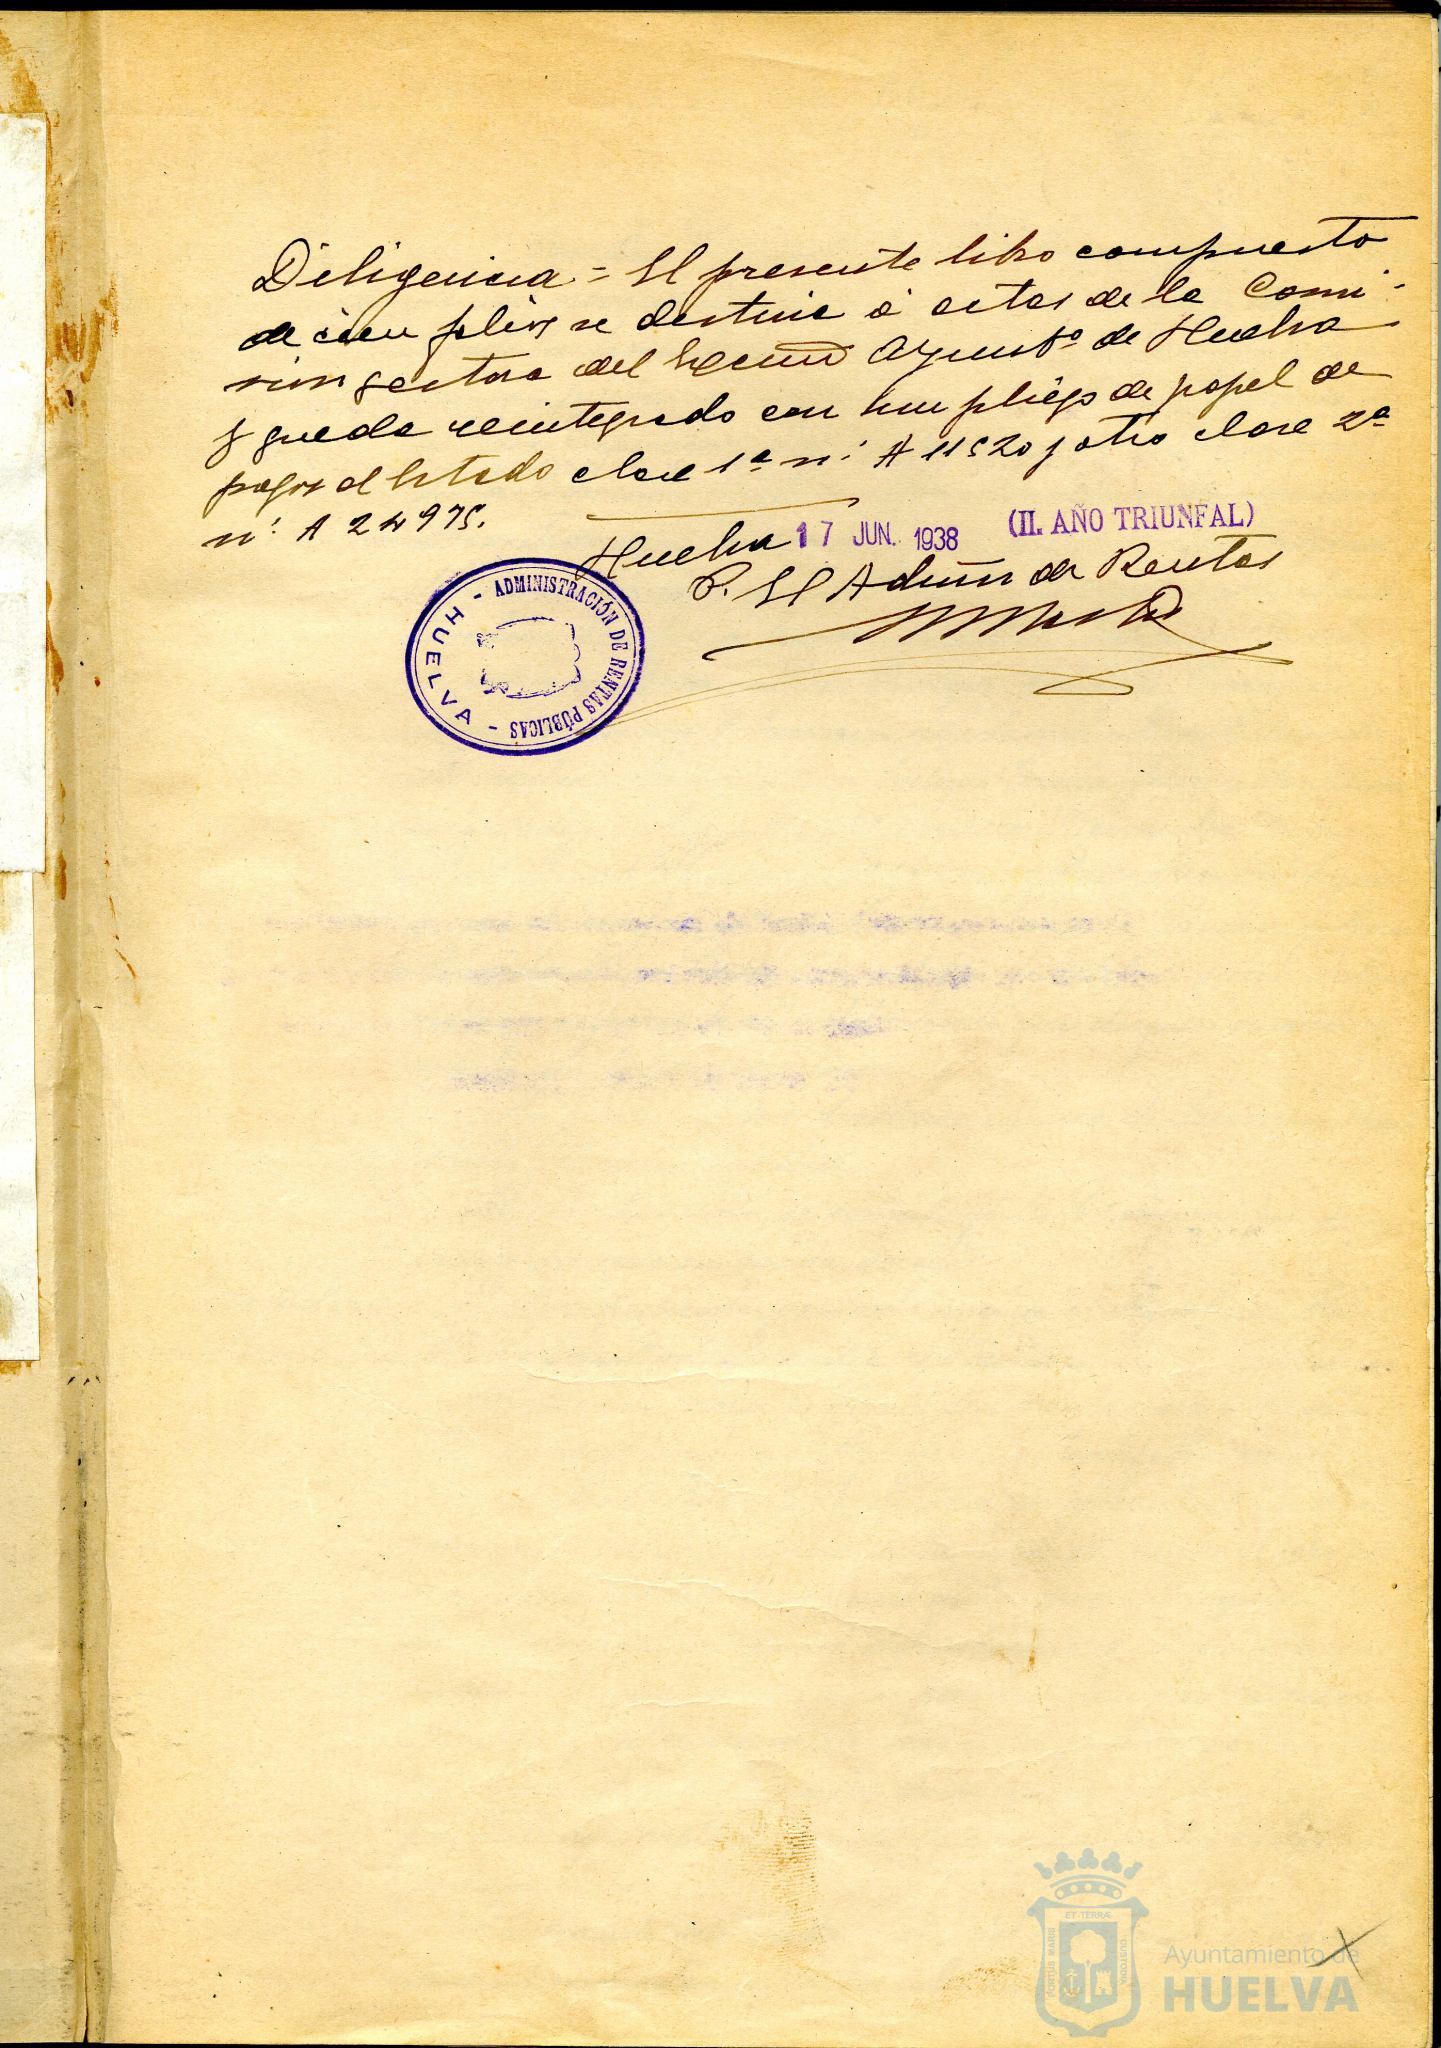 Diligencia = El presente libro compuesto
de cien folios se destina á actas de la Comi-
sion gestora del Excmo Ayuntº de Huelva
y queda reintegrado con un pliego de papel de
pagos al Estado clase 1ª nº A 11520 y otro clase 2ª
nº A 24975.
Huelva 17 JUN. 1938 (II. AÑO TRIUNFAL)
P. El Admõn de Rentas
- ADMINISTRACIÓN DE RENTAS PÚBLICAS -
HUELVA
ET TERRÆ
PORTUS MARIS
CUSTODIA
Ayuntamiento de
HUELVA